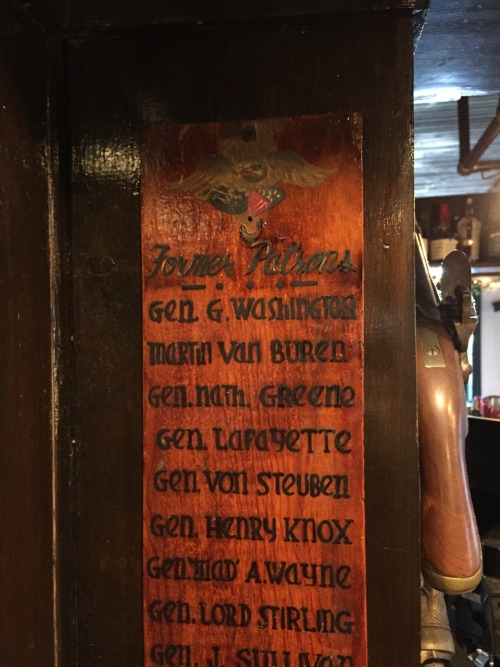 Former Patrons
Gen. G. Washington
Martin Van Buren
Gen. Nath. Greene
Gen. Lafayette
Gen. Von Steuben
Gen. Henry Knox
Gen. "Mad" A. Wayne
Gen. Lord Stirling
Gen. J. Sullivan